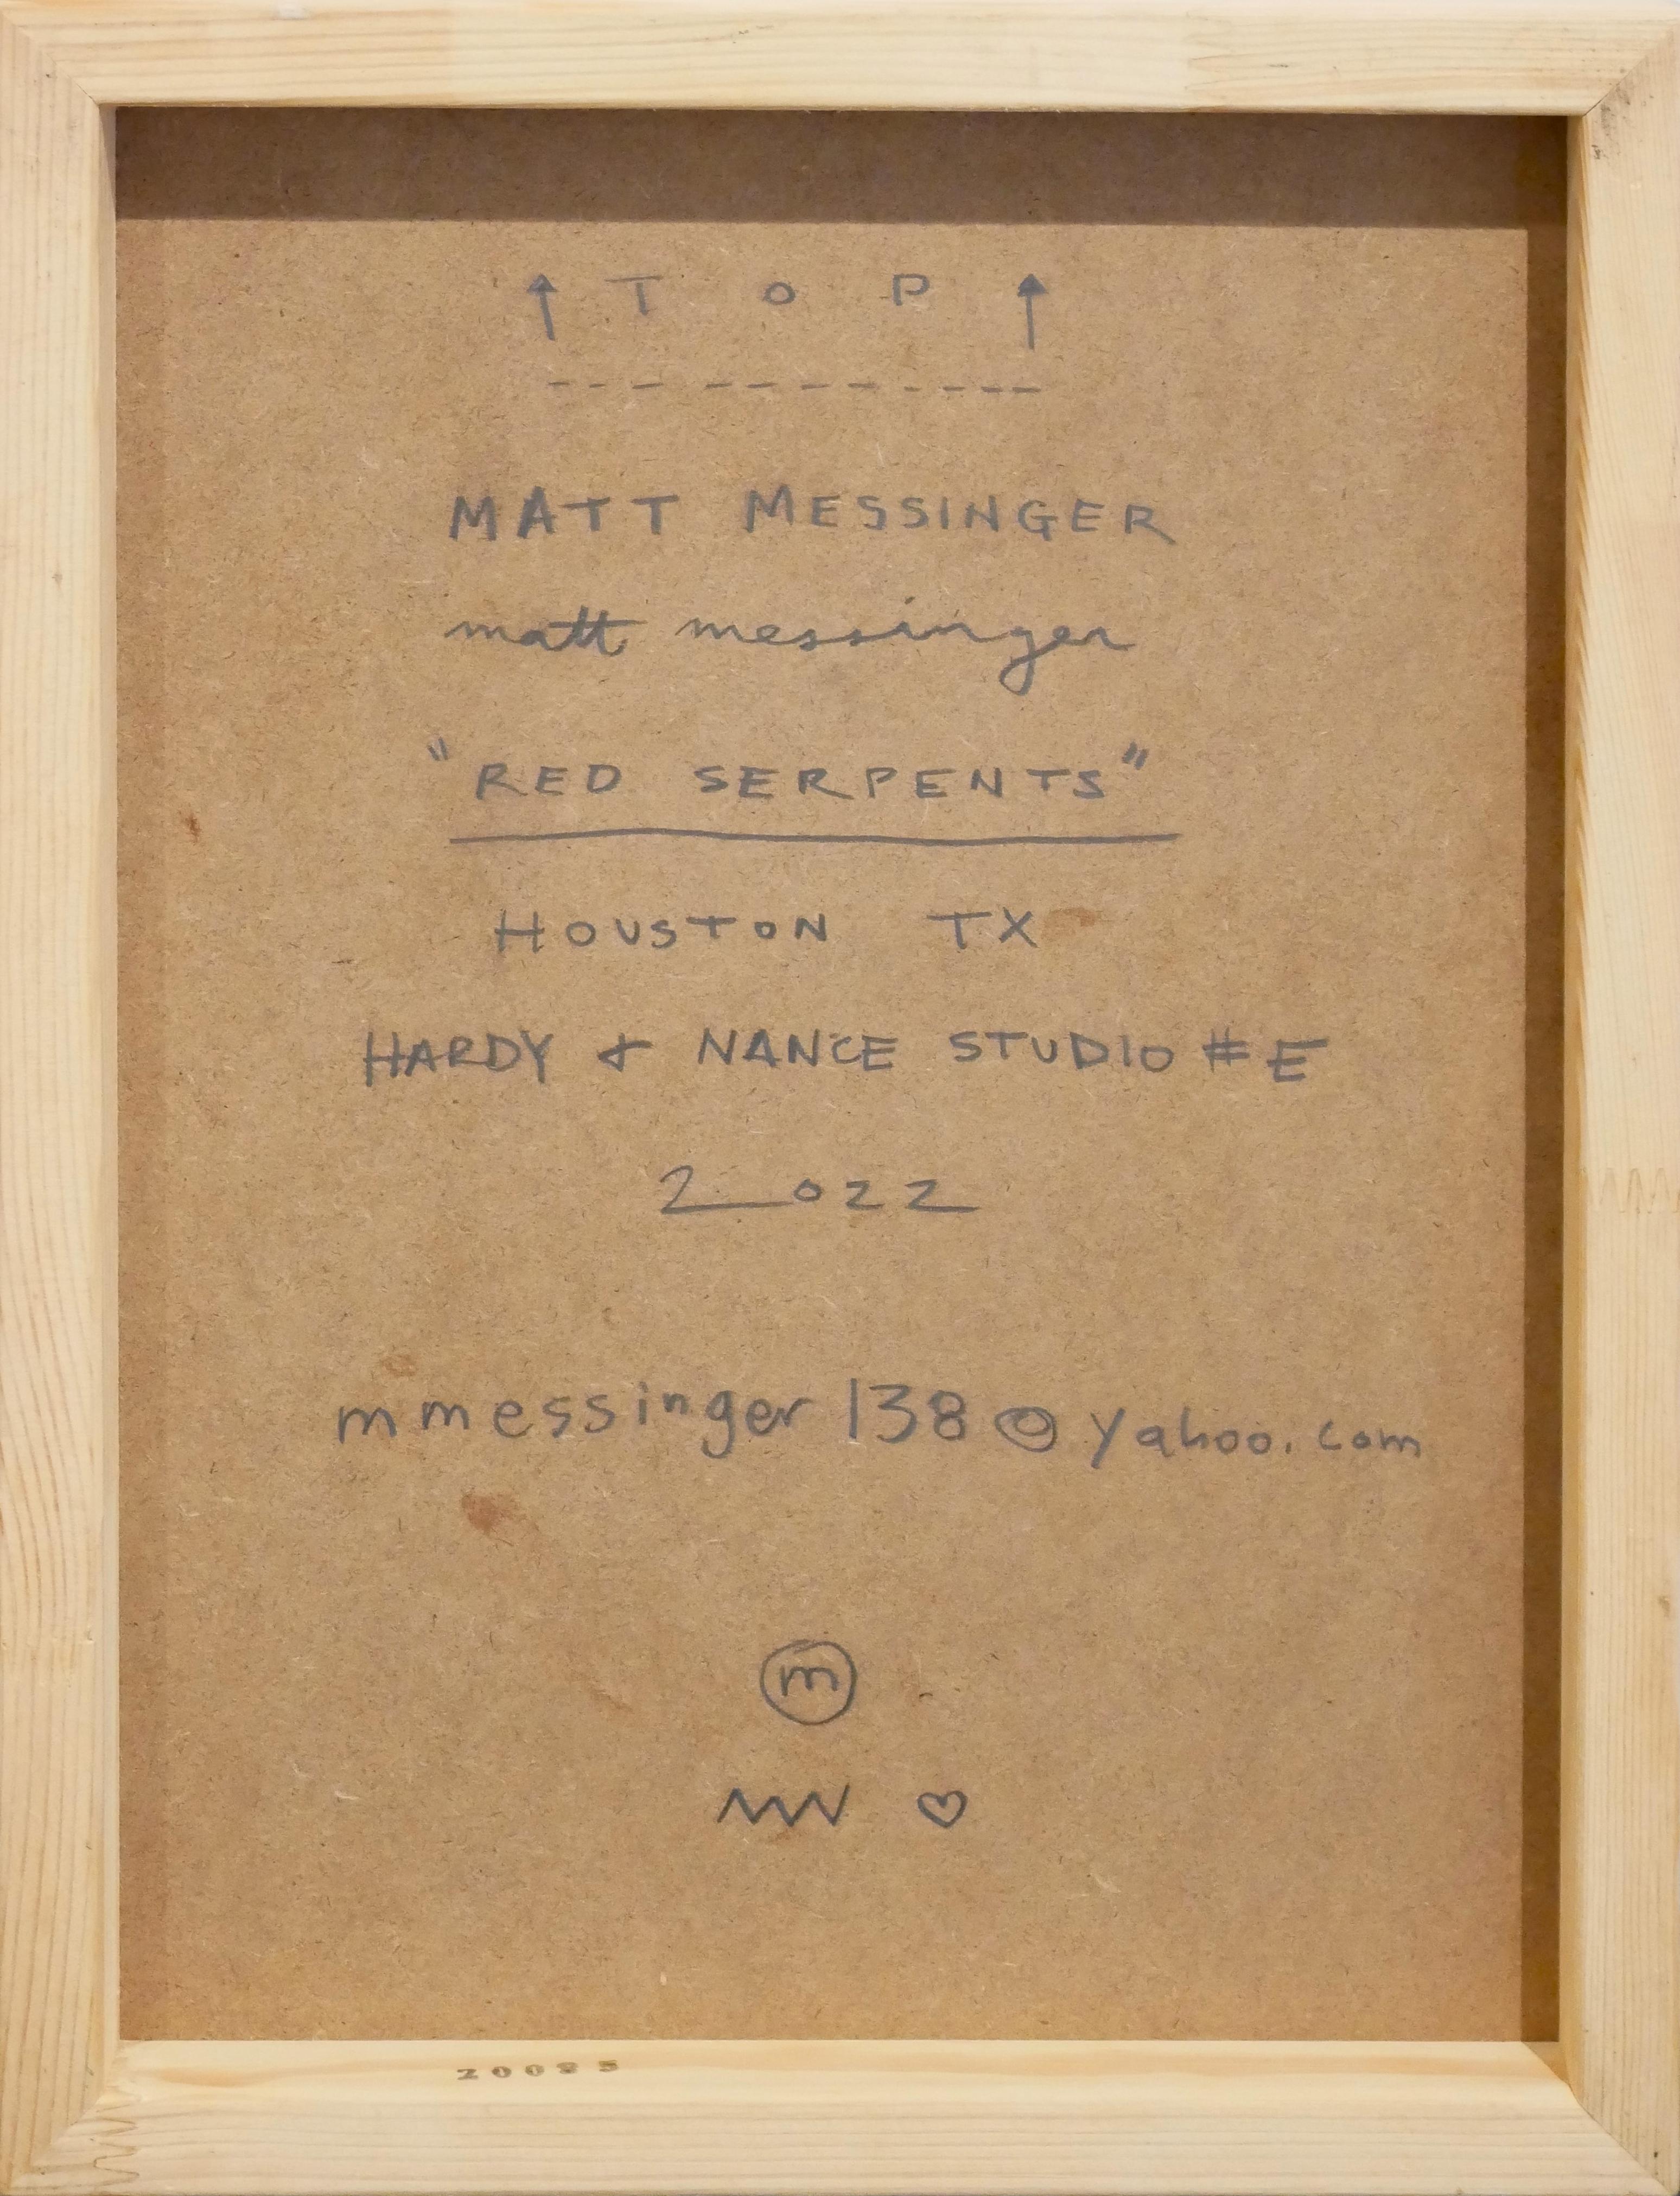 ↑ T O P ↑
MATT MESSINGER
matt messinger
"RED SERPENTS"
HOUSTON TX
HARDY & NANCE STUDIO #E
2022
mmessinger138@yahoo.com
m
♡
20085